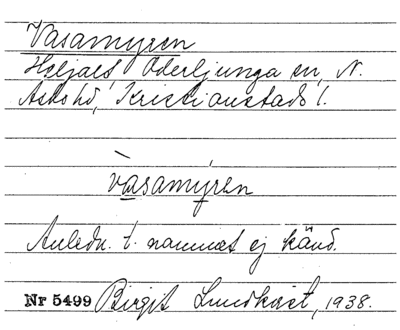 Vasamyren
Hiljaes, Oderljunga sn, N.
Åsbo hd, Kristianstads l.
vàsamýren
Anledn. t. namnet ej känd.
Nr 5499 Birgit Lundkvist, 1938.